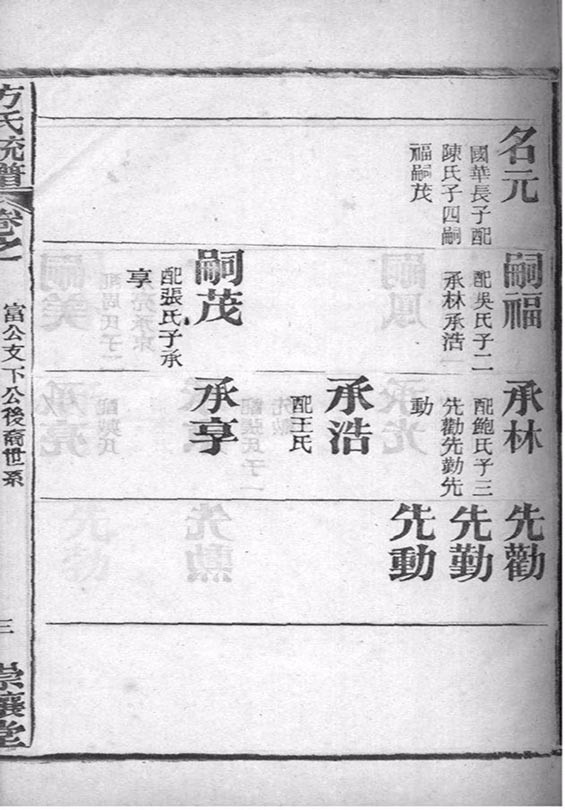 名元
國華長子配
陳氏子四嗣
福嗣茂
嗣福
配吳氏子二
承林承浩
嗣茂
配張氏子承
享
承林
配鮑氏子三
先勸先勤先
動
承浩
配王氏
承享
先勸
先勤
先動
方氏統譜
卷之
富公支下公後裔世系
三
崇讓堂